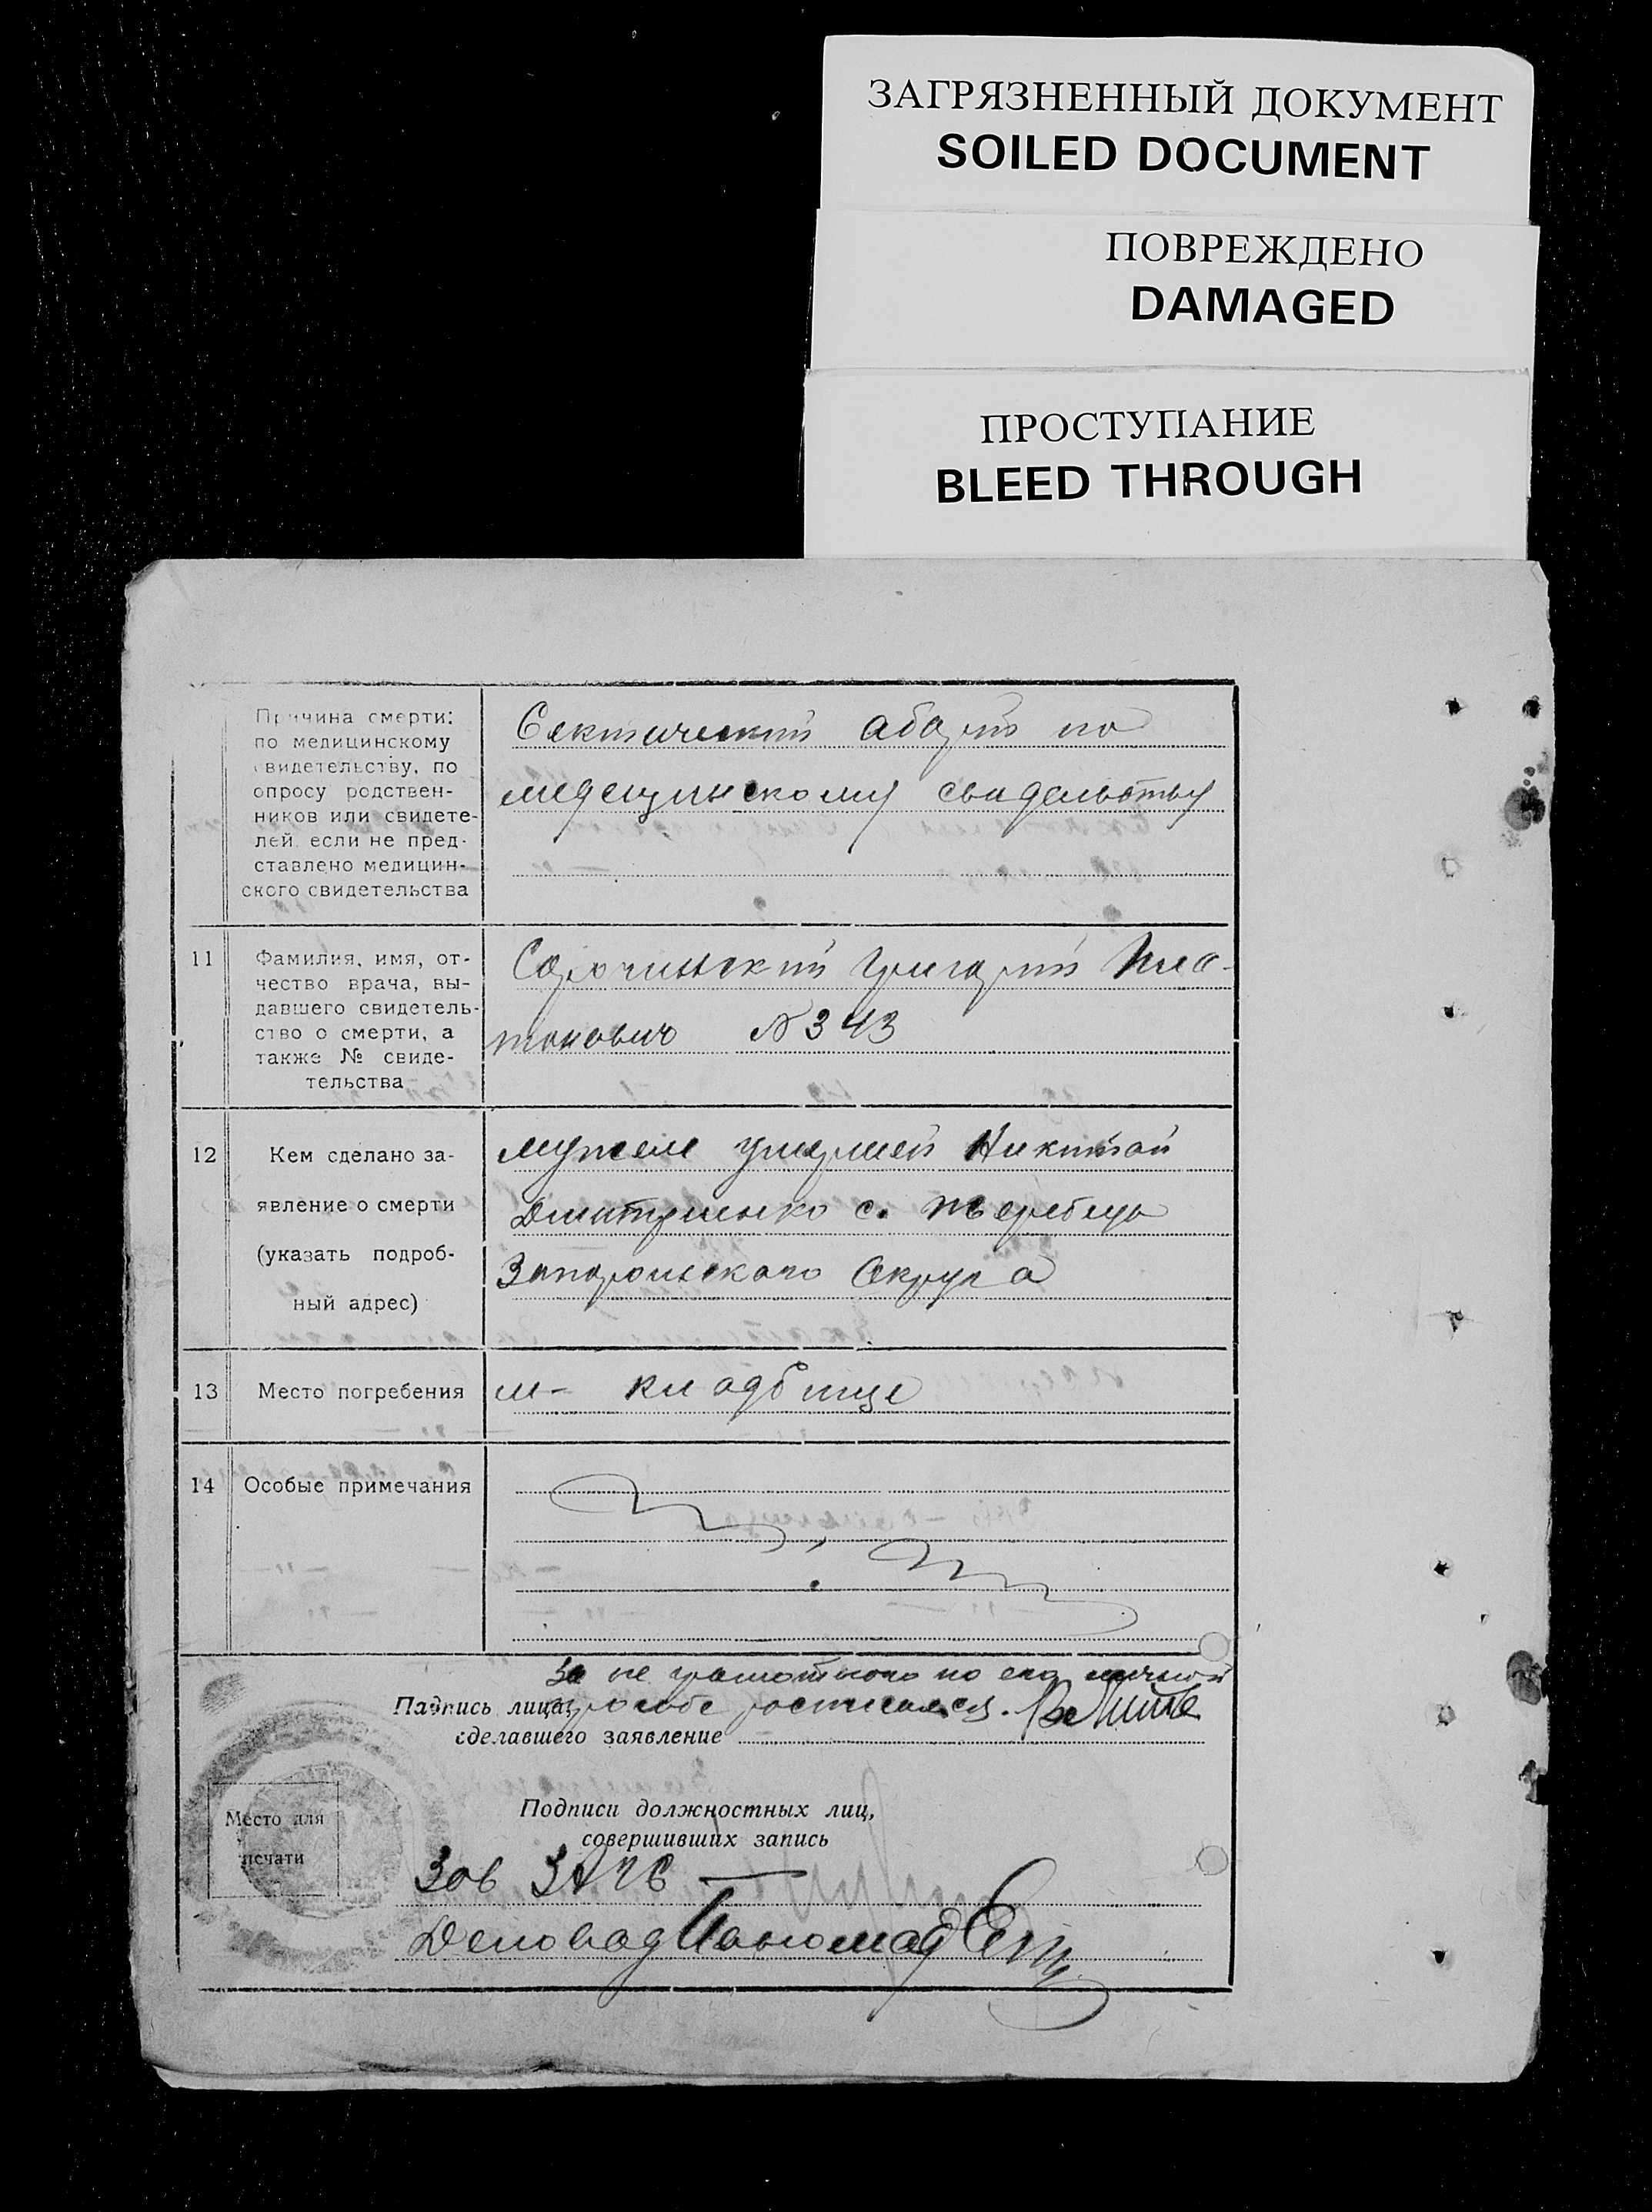 ЗАГРЯЗНЕННЫЙ ДОКУМЕНТ
SOILED DOCUMENT
ПОВРЕЖДЕНО
DAMAGED
ПРОСТУПАНИЕ
BLEED THROUGH
Причина смерти:
по медицинскому
свидетельству, по
опросу родствен-
ников или свидете-
лей, если не пред-
ставлено медицин-
ского свидетельства
Сектический аборт по
медецинскому свидельству
11
Фамилия, имя, от-
чество врача, вы-
давшего свидетель-
ство о смерти, а
также № свиде-
тельства
Сорочинский Григорий Пла-
тонович №343
12
Кем сделано за-
явление о смерти
(указать подроб-
ный адрес)
мужем умершей Никитой
Дмитриенко с. Жеребець
Запорожского Округа
13
Место погребения
м- кладбище
14
Особые примечания
За не грамотного по его личной
Подпись лица,
прозьбе росписался.
сделавшего заявление
Место для
печати
Подписи должностных лиц,
совершивших запись
Зав ЗАГС
Деловод